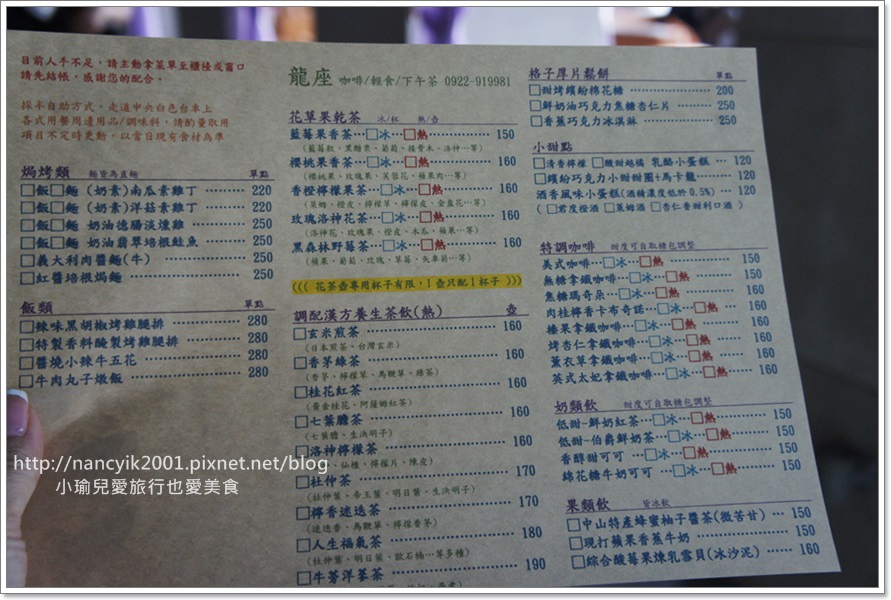 目前人手不足，請主動拿菜單至櫃檯或窗口
請先結帳，感謝您的配合。
採半自助方式，走道中央白色台車上
各式用餐周邊用品/調味料，請酌量取用
項目不定時更動，以當日現有食材為準
焗烤類 麵皆為直麵 單點
□飯□麵 (奶素)南瓜素雞丁 ········ 220
□飯□麵 (奶素)洋菇素雞丁 ········ 220
□飯□麵 奶油德腸淡燻雞 ········ 250
□飯□麵 奶油翡翠培根鮭魚 ········ 250
□義大利肉醬麵(牛) ········ 250
□紅醬培根焗麵 ········ 250
飯類 單點
□辣味黑胡椒烤雞腿排 ········ 280
□特製香料醃製烤雞腿排 ········ 280
□醬燒小辣牛五花 ········ 280
□牛肉丸子燉飯 ········ 280
龍座 咖啡/輕食/下午茶 0922-919981
花草果乾茶 冰/杯 熱/壺
藍莓果香茶···□冰···□熱 ········ 150
(藍莓乾、黑糖素、葡萄、接骨木、洛神…等)
櫻桃果香茶···□冰···□熱 ········ 160
(櫻桃果、玫瑰果、芙蓉花、蘋果肉…等)
香橙檸檬果茶···□冰···□熱 ········ 160
(萊姆、橙皮、檸檬草、檸檬皮、金盞花…等)
玫瑰洛神花茶···□冰···□熱 ········ 160
(洛神花、玫瑰果、橙皮、木瓜、蘋果…等)
黑森林野莓茶···□冰···□熱 ········ 160
(蘋果、葡萄、玫瑰、草莓、矢車菊…等)
((( 花茶壺專用杯子有限，1壺只配1杯子 )))
調配漢方養生茶飲(熱) 壺
□玄米煎茶 ········ 160
(日本煎茶、台灣玄米)
□香茅綠茶 ········ 160
(香茅、檸檬草、馬鞭草、綠茶)
□桂花紅茶 ········ 160
(黃金桂花、阿薩姆紅茶)
□七葉膽茶 ········ 160
(七葉膽、生決明子)
□洛神檸檬茶 ········ 160
仙楂、檸檬片、陳皮)
□杜仲茶 ········ 170
(杜仲葉、帝王葉、明日葉、生決明子)
□檸香迷迭茶 ········ 170
(迷迭香、馬鞭草、檸檬香茅)
□人生福氣茶 ········ 180
(杜仲葉、明日葉、歐石楠…等多種)
□牛蒡洋蔘茶 ········ 190
格子厚片鬆餅 單點
□甜烤繽紛棉花糖 ········ 200
□鮮奶油巧克力焦糖杏仁片 ········ 250
□香蕉巧克力冰淇淋 ········ 250
小甜點
□清香檸檬 □酸甜越橘 乳酪小蛋糕 ··· 120
□繽紛巧克力小甜甜圈+馬卡龍 ········ 120
酒香風味小蛋糕(酒精濃度低於0.5%) ··· 120
(□君度橙酒 □萊姆酒 □杏仁香甜利口酒)
特調咖啡 甜度可自取糖包調整
美式咖啡···□冰···□熱 ········ 150
焦糖拿鐵咖啡···□冰···□熱 ········ 150
焦糖瑪奇朵···□冰···□熱 ········ 160
肉桂檸香卡布奇諾···□冰···□熱 ········ 160
榛果拿鐵咖啡···□冰···□熱 ········ 160
烤杏仁拿鐵咖啡···□冰···□熱 ········ 160
薰衣草拿鐵咖啡···□冰···□熱 ········ 160
英式太妃拿鐵咖啡···□冰···□熱 ········ 160
奶類飲 甜度可自取糖包調整
低甜-鮮奶紅茶···□冰···□熱 ········ 150
低甜-伯爵鮮奶茶···□冰···□熱 ········ 150
香醇甜可可···□冰···□熱 ········ 150
綿花糖牛奶可可···□冰···□熱 ········ 150
果類飲 皆冰飲
□中山特產蜂蜜柚子醬茶(微苦甘) ··· 150
□現打蘋果香蕉牛奶 ········ 150
□綜合酸莓果煉乳雪貝(冰沙泥) ········ 160
http://nancyik2001.pixnet.net/blog
小瑜兒愛旅行也愛美食